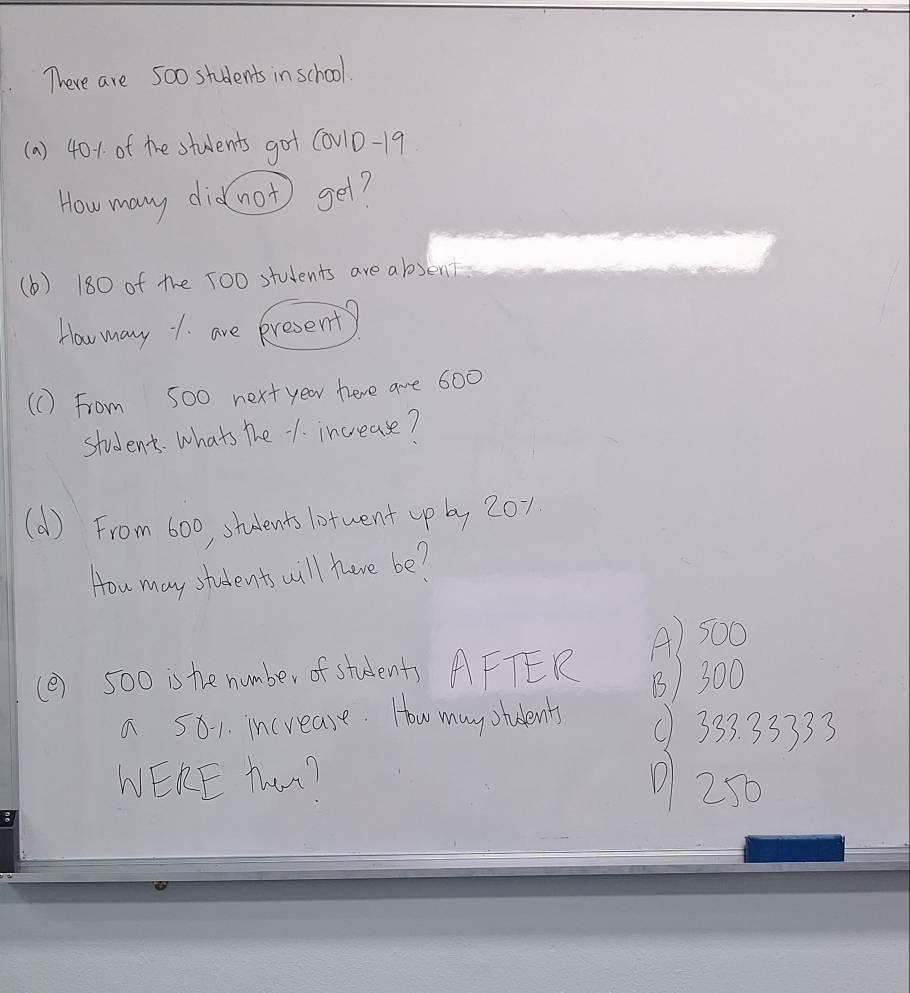 There are 500 students in school.
(a) 40% of the students got COVID-19.
How many did not get?
(b) 180 of the 500 students are absent.
How may % are present?
(c) From 500 next year there are 600
students. Whats the % increase?
(d) From 600, students lot went up by 20%.
How may students will there be?
(e) 500 is the number of students AFTER
a 50% increase. How may students
WERE there?
A) 500
B) 300
C) 333.33333
D) 250